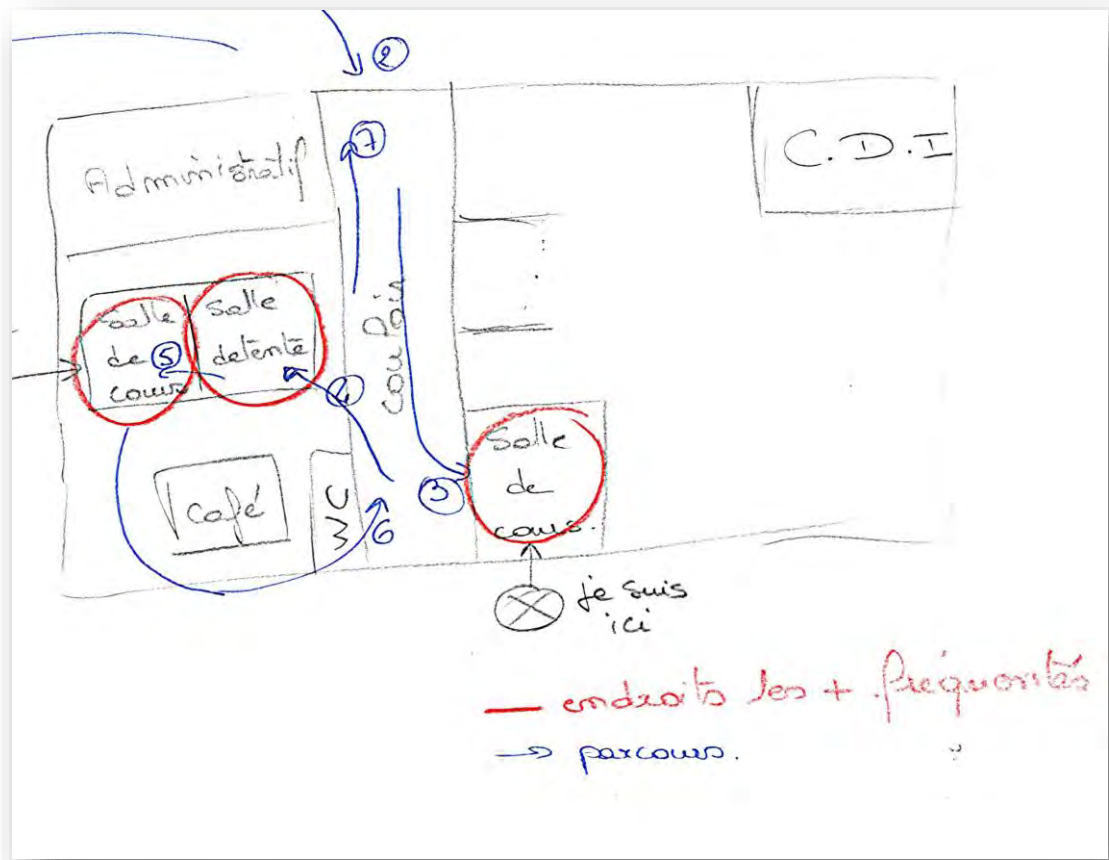 2
7
Administratif
C.D.I
Salle
de 5
cours
Salle
détente
couloir
4
Salle
de
cours.
3
café
WC
6
je suis
ici
endroits les + fréquentés
parcours.